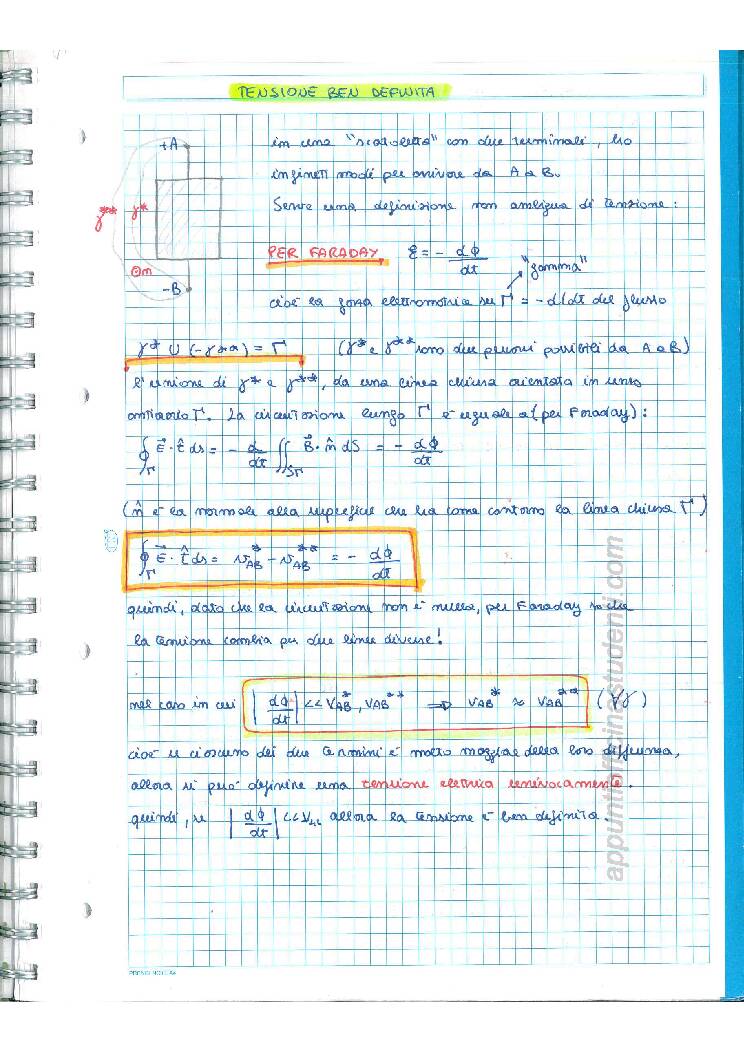 TENSIONE BEN DEFINITA
+A
γ** γ*
⊙m
-B
in una "scatoletta" con due terminali, ho
infiniti modi per arrivare da A a B.
Serve una definizione non ambigua di tensione:
PER FARADAY ε = - dΦ/dt
"gamma"
cioè la forza elettromotrice su Γ = -d/dt del flusso
γ* U (-γ**) = Γ (γ* e γ** sono due percorsi possibili da A a B)
l'unione di γ* e γ**, da una linea chiusa orientata in senso
antiorario Γ. La circuitazione lungo Γ è uguale a (per Faraday):
∮Γ E⃗ · t̂ ds = - d/dt ∬SΓ B⃗ · n̂ dS = - dΦ/dt
(n̂ è la normale alla superficie che ha come contorno la linea chiusa Γ)
∮Γ E⃗ · t̂ ds = v*AB - v**AB = - dΦ/dt
quindi, dato che la circuitazione non è nulla, per Faraday so che
la tensione cambia per due linee diverse!
nel caso in cui |dΦ/dt| << V*AB, V**AB ⇒ VAB* ≈ VAB** (∀γ)
cioè se ciascuno dei due termini è molto maggiore della loro differenza,
allora si può definire una tensione elettrica univocamente.
quindi, se |dΦ/dt| << allora la tensione è ben definita.
appuntiofficinastudenti.com